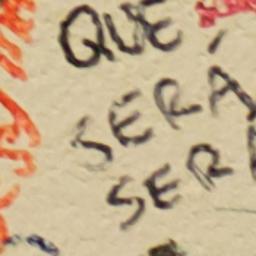 QUE
SERÁ
SER